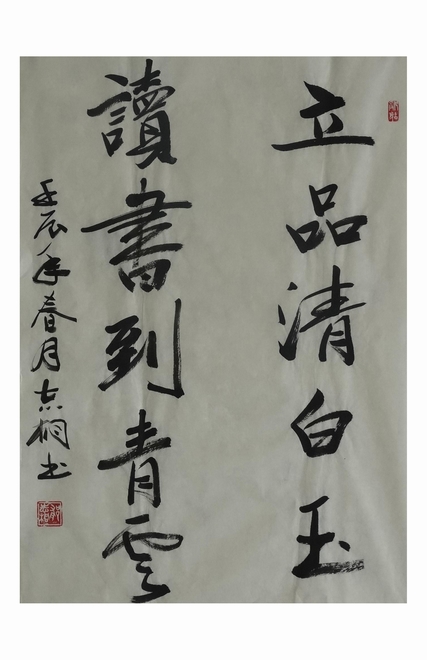 立品清白玉
讀書到青雲
壬辰年春月志桐书